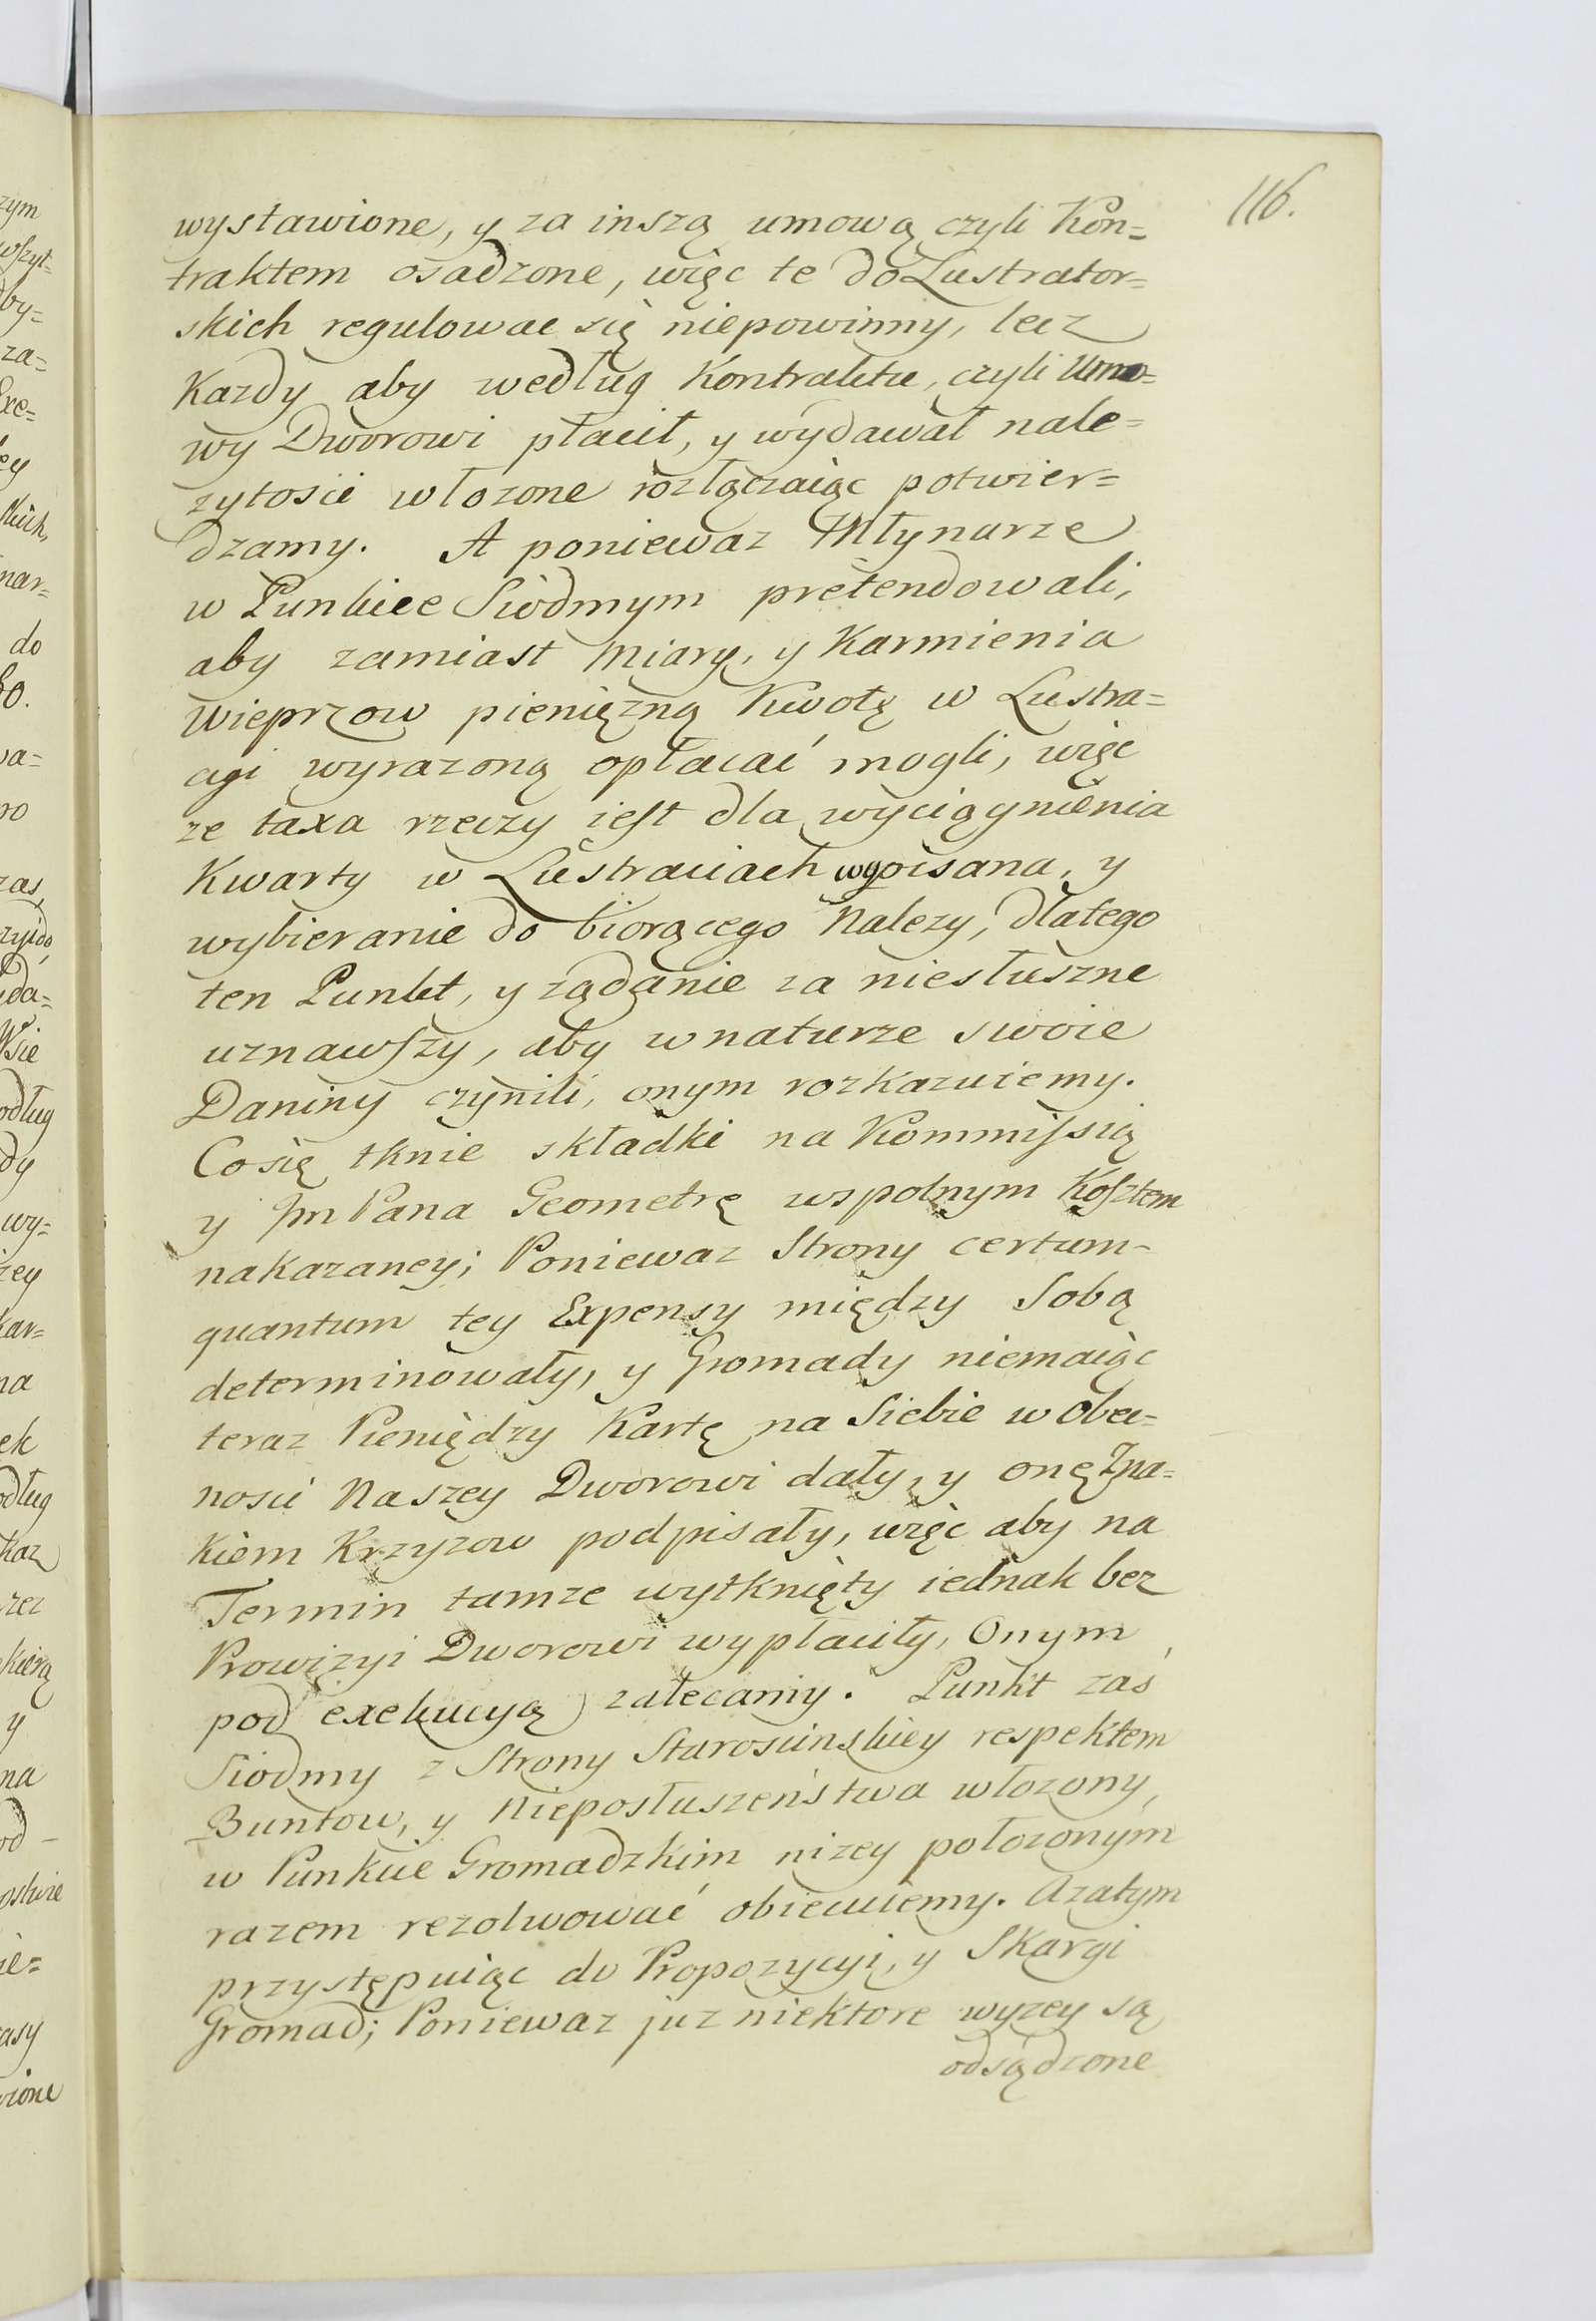 116.
wystawione, y za inszą umową czyli Kon=
traktem osadzone, więc te do Lustrator=
skich regulowac się niepowinny, lecz
Kazdy aby według Kontraktu, czyli Umo=
wy Dworowi płacił, y wydawał nale=
zytoscie włozone rozłączaiąc potwier=
dzamy. A poniewaz Młynarze
w Punkcie Siodmym pretendowali,
aby zamiast Miary, y Karmienia
Wieprzow pienięzną Kwotę w Lustra=
cyi wyrazoną opłacać mogli, więc
ze taxa rzeczy iest dla wyciągnienia
Kwarty w Lustraciach wypisana, y
wybieranie do biorącego Nalezy, dlatego
ten Punkt, y ządanie za niesłuszne
uznawszy, aby w naturze swoie
Daniny czynili, onym rozkazuiemy.
Co się tknie składki na Kommissią
y Jm Pana Geometrę wspolnym Kosztem
nakazaney; Poniewaz Strony certum-
quantum tey Expensy między Sobą
determinowały, y Gromady niemaiąc
teraz Pieniędzy Kartę na Siebie w Obec=
nosci Naszey Dworowi dały, y onę Zna=
kiem Krzyzow podpisały, więc aby na
Termin tamze wytknięty iednak bez
Prowizyi Dworowi wypłaciły, Onym
pod exekucyą zalecamy. Punkt zaś
Siodmy z Strony Starościnskiey respektem
Buntow, y Nieposłuszeństwa włozony,
w Punkcie Gromadzkim nizey połozonym
razem rezolwować obiecuiemy. Azatym
przystępuiąc do Propozycyi, y Skargi
Gromad; Poniewaz juz niektore wyzey są
odsądzone
zym
wszyt=
by=
za=
Exe=
ey
nar=
do
wa=
ro
zas,
uda=
Wsie
odług
dy
wy=
zey
kar=
na
ek
odług
kaz
rez
y
na
od -
ie=
asy